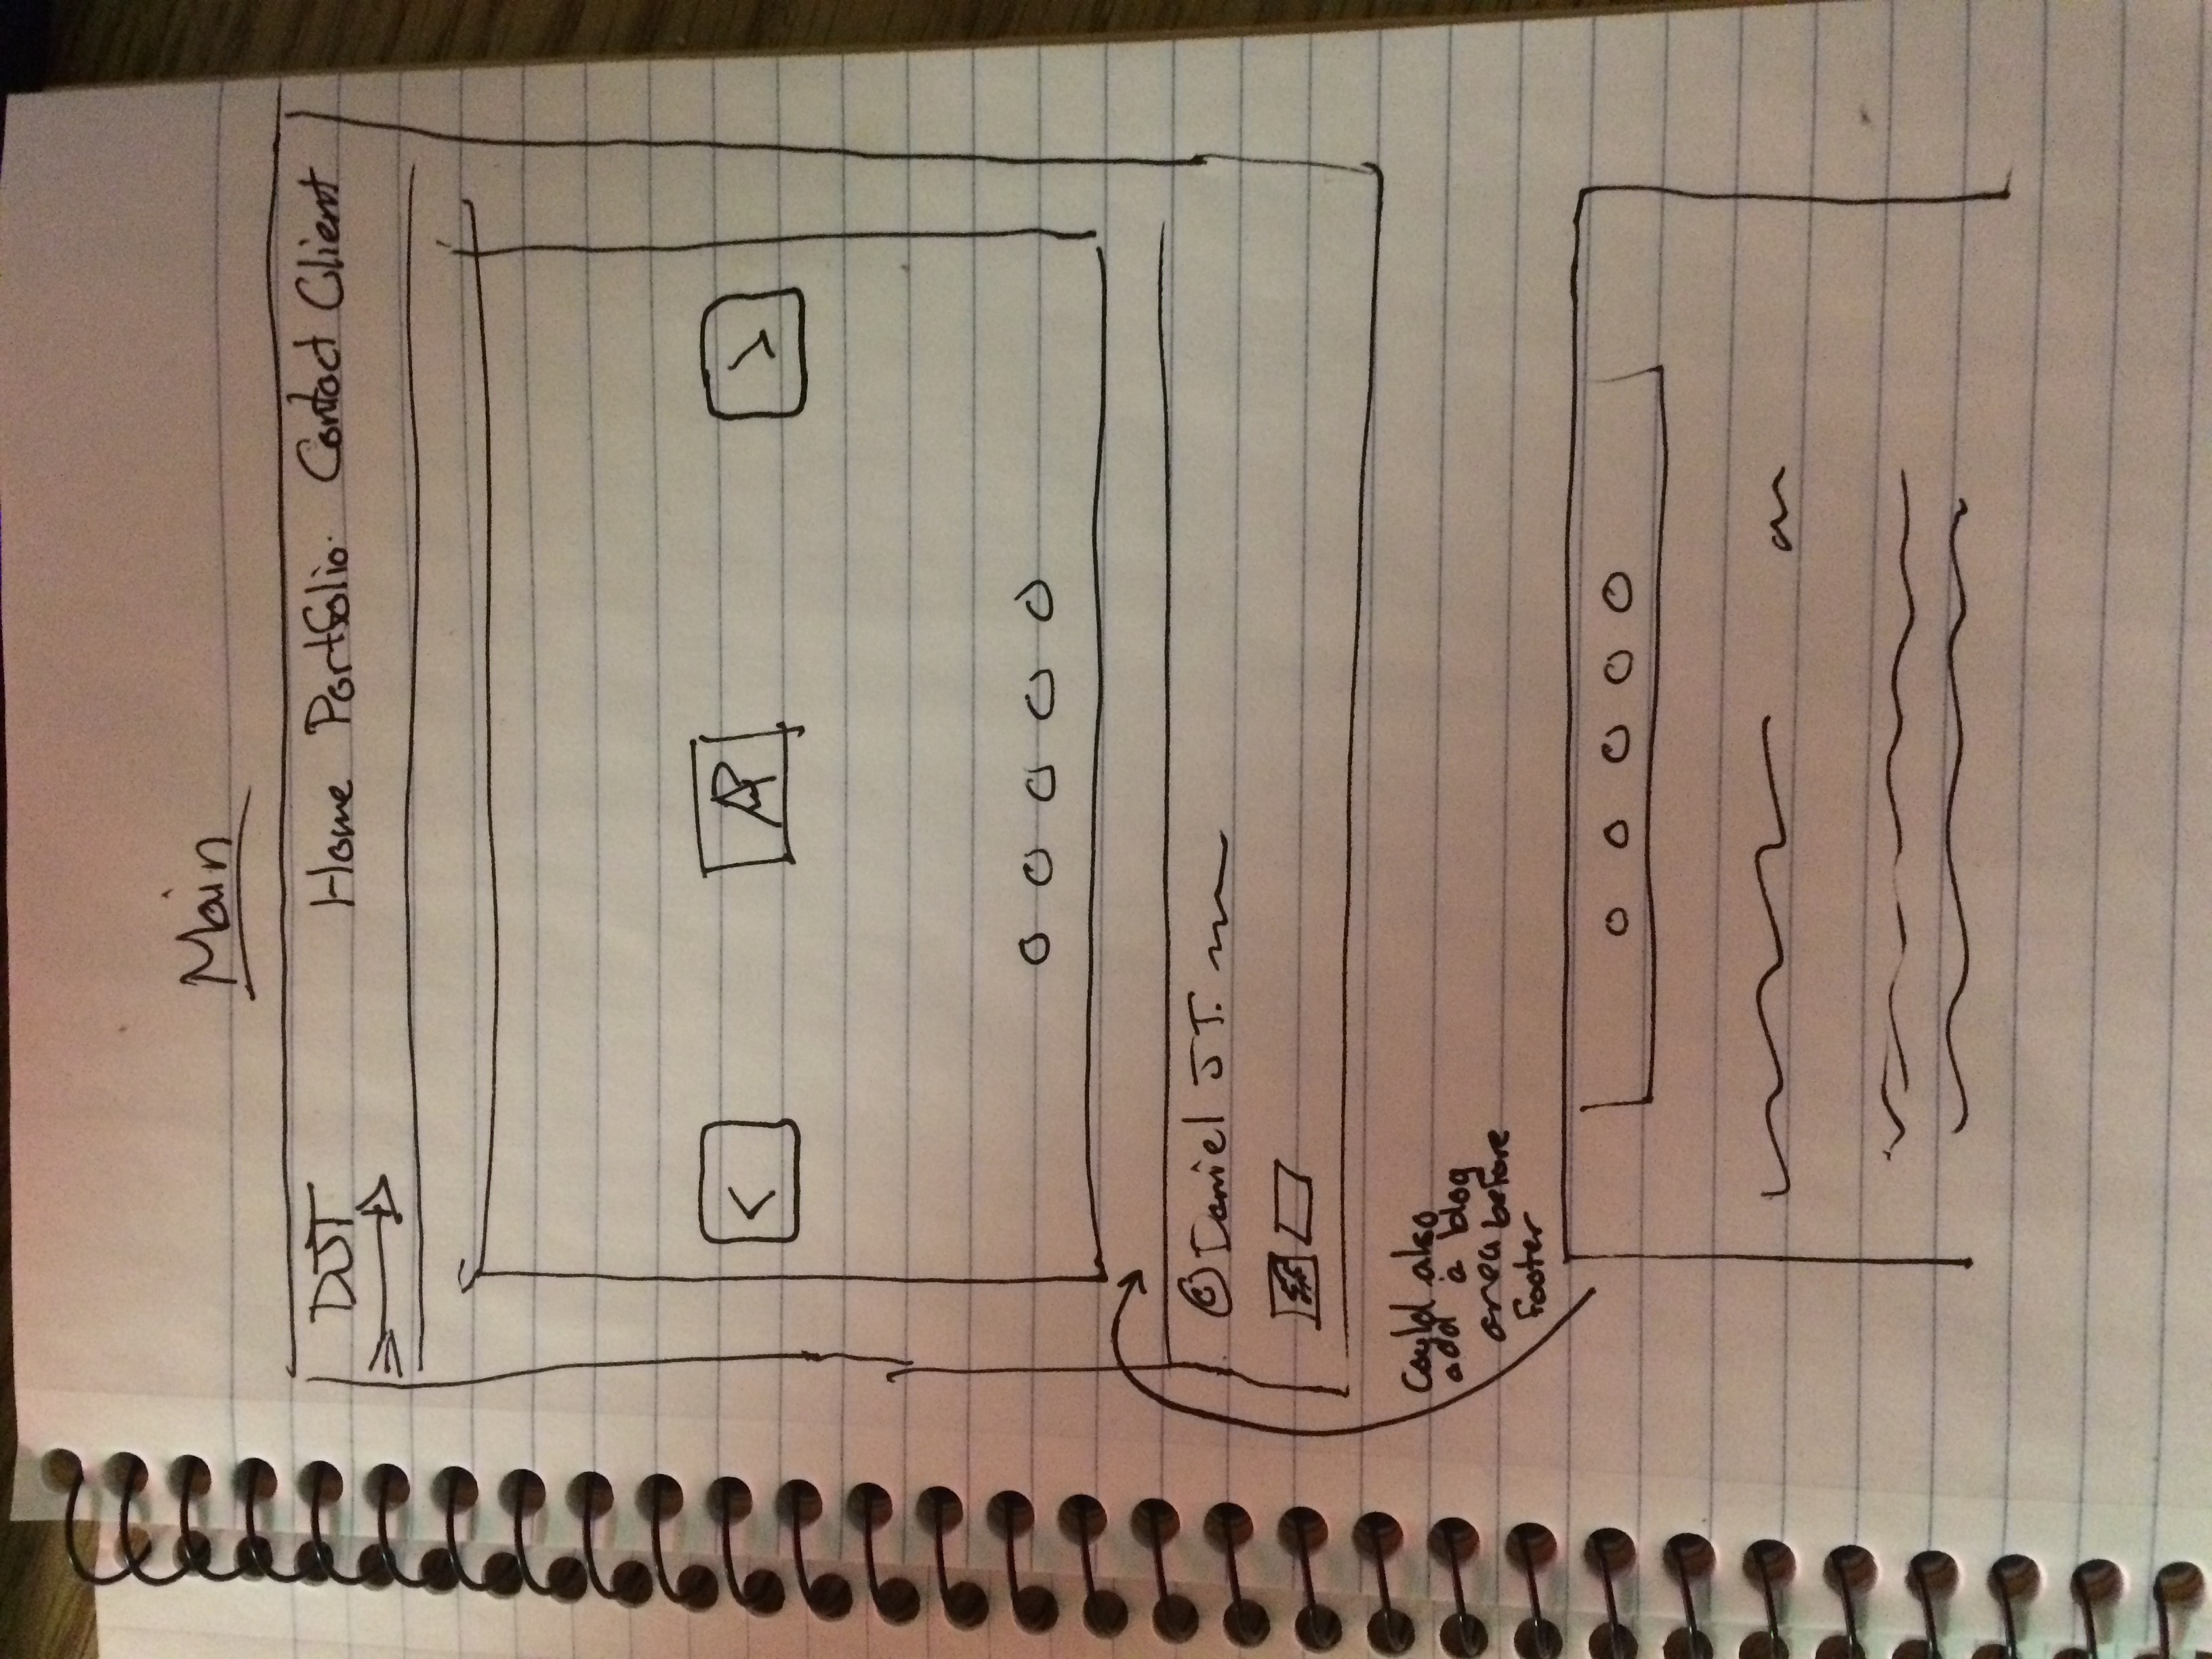 Main
DJT
Home Portfolio Contact Client
<
>
© Daniel JT.
Could also
add a blog
area before
footer